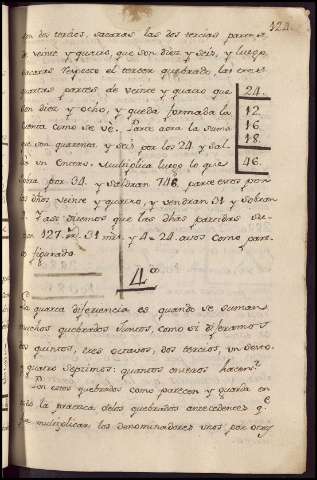 124.
son dos tercios, sacaras las dos tercias partes
de veinte y quatro, que son diez y seis, y luego
sacaras respecto el tercer quebrado, las tres
quartas partes de veinte y quatro que
son diez y ocho, y queda formada la
cuenta como se vè. Parte aora la suma
que son quarenta, y seis por los 24 y sal-
un entero. Multiplica luego lo que
sobra por 34. y saldran 748. parte estos por
los dhos veinte y quatro, y vendran 31 y sobran
4. y asi diremos que las dhas partidas su-
127. 31 mrs. y 4 24 avos como pare-
figurado.
24.
12.
16.
18.
46.
4ª
La quarta diferencia es quando se suman
muchos quebrados juntos, como si dixeramos
quintos, tres octavos, dos tercios, un sexto
y quatro septimos: quantos enteros hacen?
Pon estos quebrados como parecen y guarda en
la practica delos quebrados antecedentes q.e
multiplicar los denominadores unos por otros